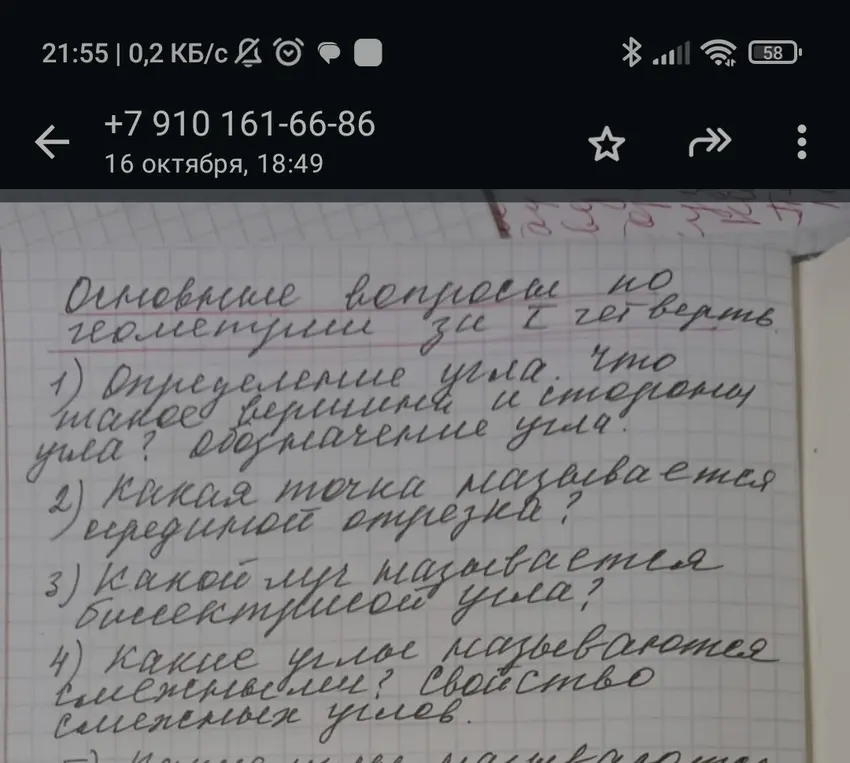 21:55 | 0,2 КБ/с
58
+7 910 161-66-86
16 октября, 18:49
Основные вопросы по
геометрии за I четверть.
1) Определение угла. Что
такое вершина и стороны
угла? Обозначение угла.
2) Какая точка называется
серединой отрезка?
3) Какой луч называется
биссектрисой угла?
4) Какие углы называются
смежными? Свойство
смежных углов.
называются